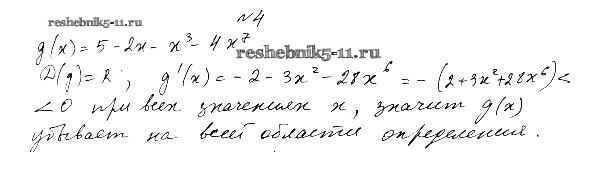 №4
reshebnik5-11.ru
g(x) = 5 - 2x - x³ - 4x⁷
reshebnik5-11.ru
D(g) = R ; g'(x) = -2 - 3x² - 28x⁶ = -(2+3x²+28x⁶) <
< 0 при всех значениях x, значит g(x)
убывает на всей области определения.